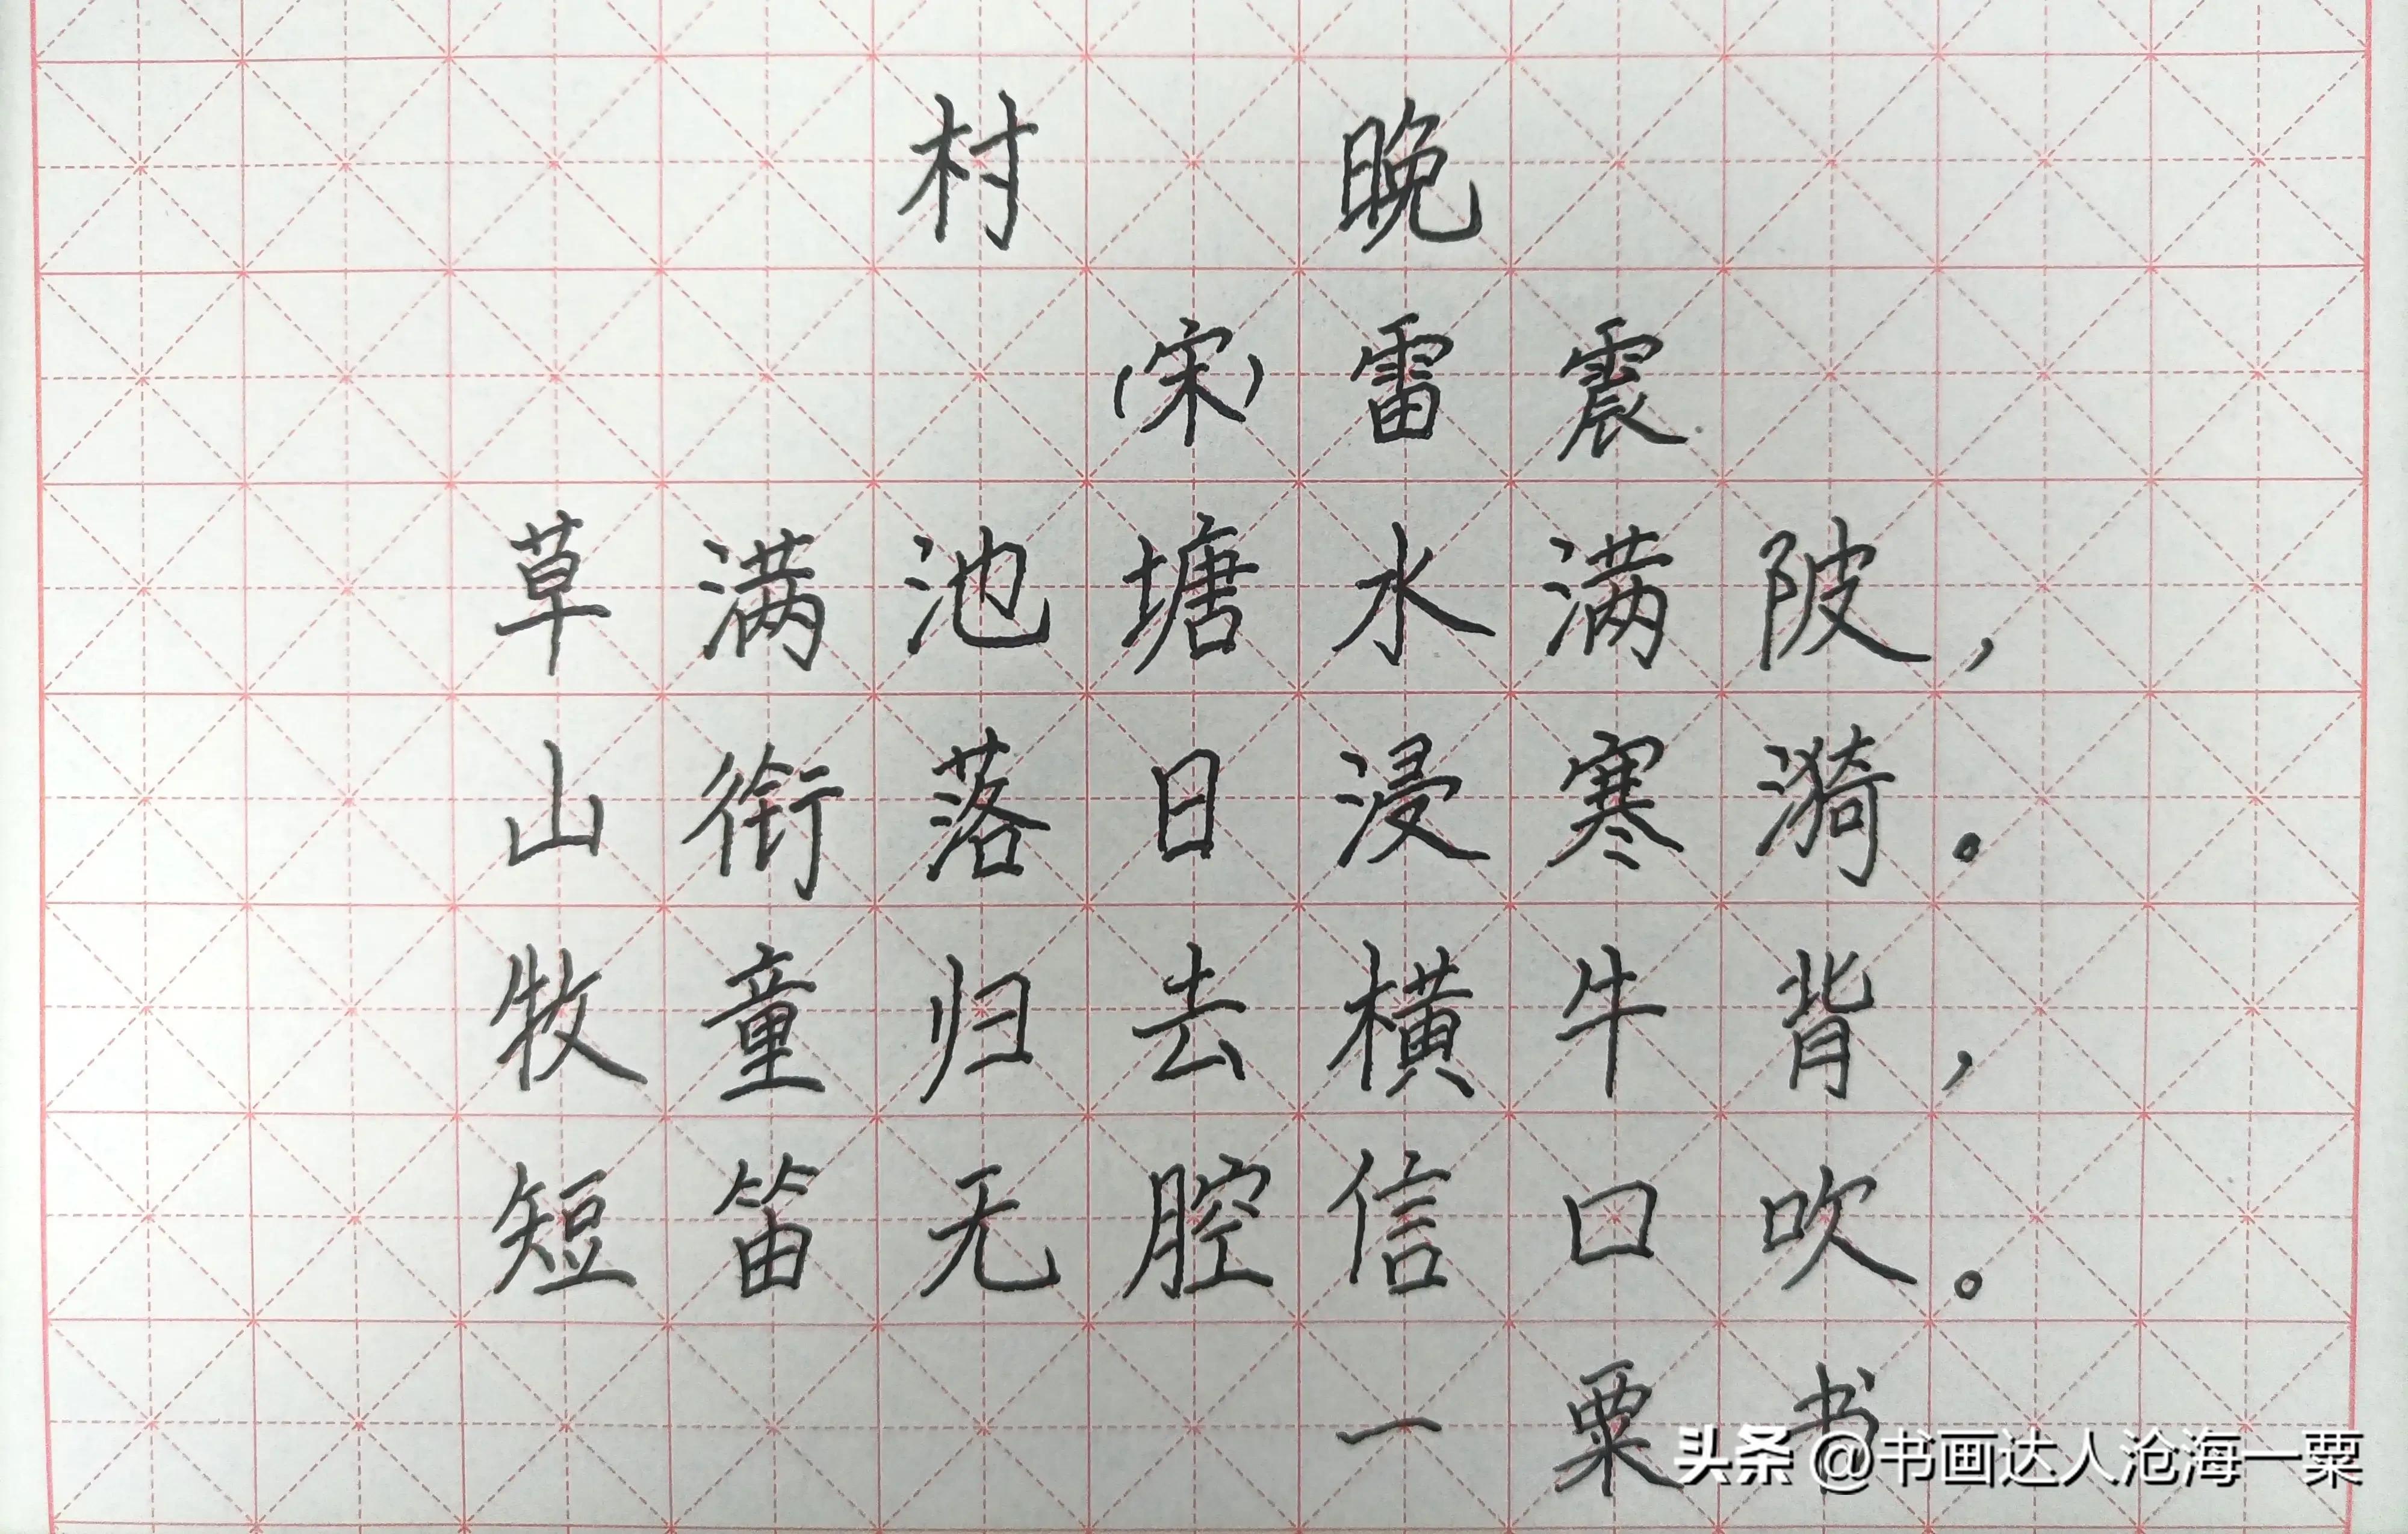 村晚
(宋)雷震
草满池塘水满陂，
山衔落日浸寒漪。
牧童归去横牛背，
短笛无腔信口吹。
一粟书
头条 @书画达人沧海一粟